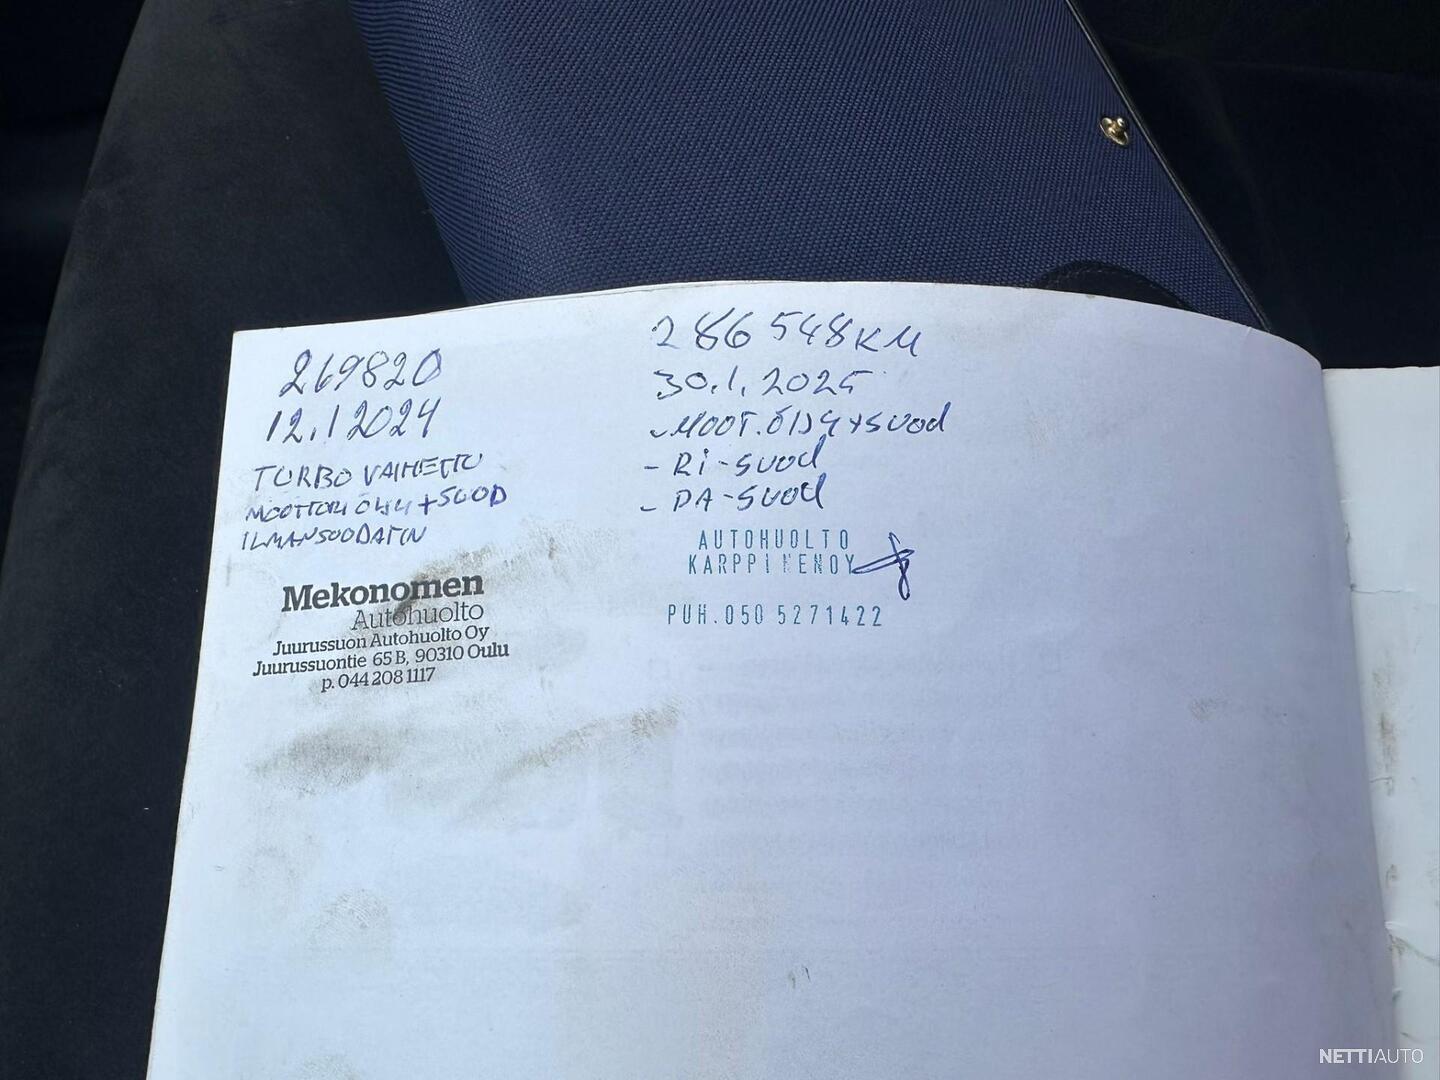 269820
12.1 2024
TURBO VAIHETTU
MOOTTORI ÖLJY + SUOD
ILMANSUODATIN
Mekonomen
Autohuolto
Juurussuon Autohuolto Oy
Juurussuontie 65 B, 90310 Oulu
p. 044 208 1117
286 548 KM
30.1.2025
- MOOT.ÖLJY+SUOD
- Ri-SUOD
- PA-SUOD
AUTOHUOLTO
KARPPINENOY
PUH.050 5271422
NETTIAUTO